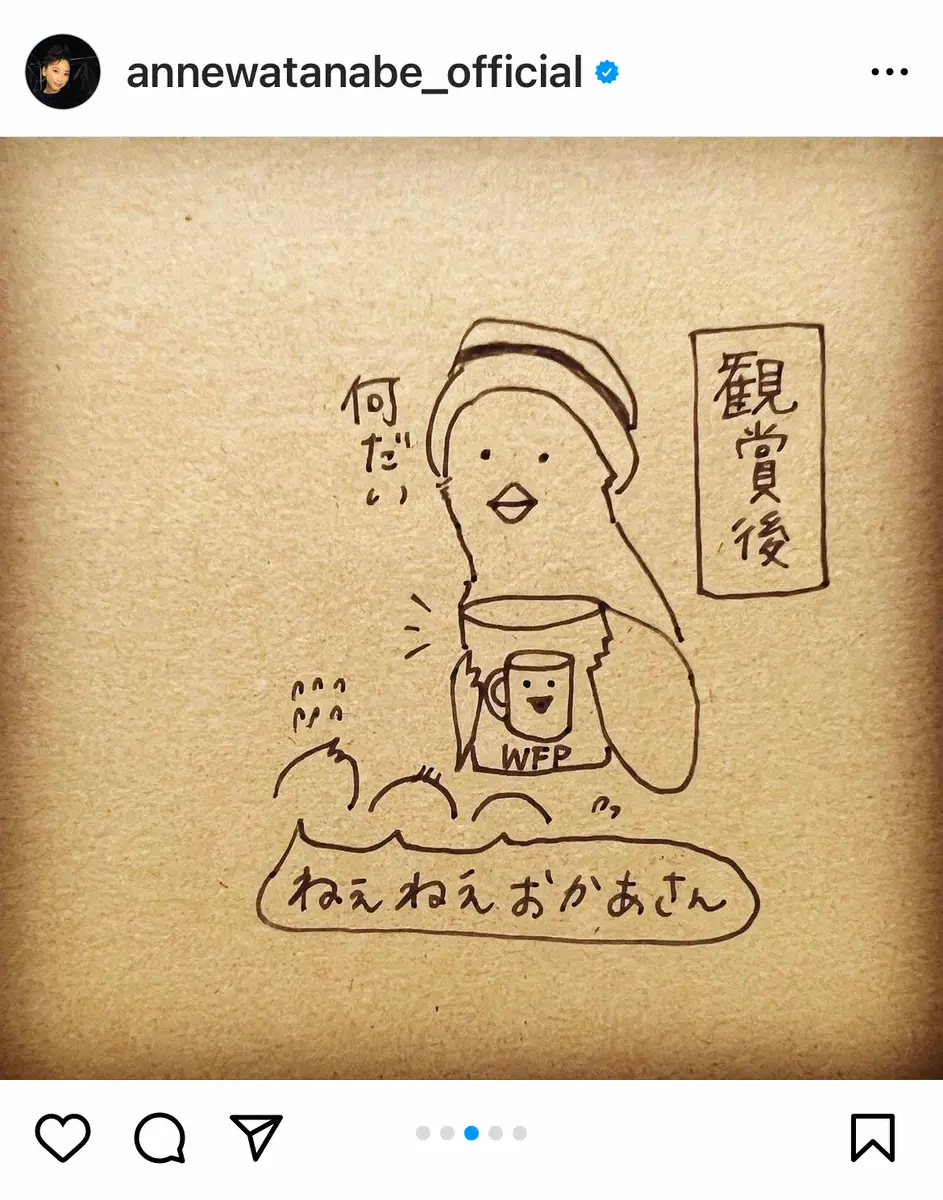 annewatanabe_official
観賞後
何だい
WFP
ねぇねぇおかあさん